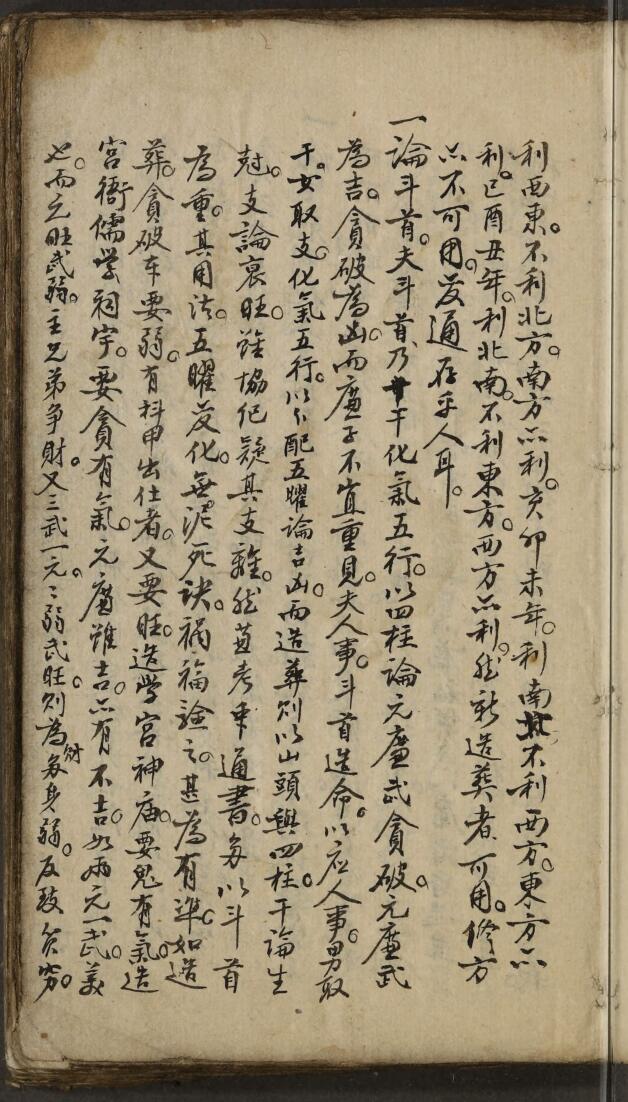 利西東。不利北方。南方亦利。亥卯未年。利南北不利西方。東方亦
利。巳酉丑年。利北南。不利東方。西方亦利。然新造葬者可用。修方
亦不可用。变通存乎人耳。
一論斗首。夫斗首乃十干化氣五行。以四柱論元廉武貪破。元廉武
為吉。貪破為凶。而廉子不宜重見。夫人事。斗首造命。以应人事。男取
干。女取支。化氣五行。以分配五曜論吉凶。而造葬則以山頭與四柱。干論生
尅。支論衰旺。雖協紀疑其支離。然曾考本通書。多以斗首
為重。其用法。五曜变化。無泥死訣。禍福驗之。甚為有準。如造
葬。貪破本要弱。有科甲出仕者。又要旺。造学宮神庙。要鬼有氣。造
宮衙儒学祠宇。要貪有氣。元廉雖吉。亦有不吉。如兩元一武。美
也。而元旺武弱。主兄弟争財。又三武一元。元弱武旺。則為財多身弱。反致貧窮。